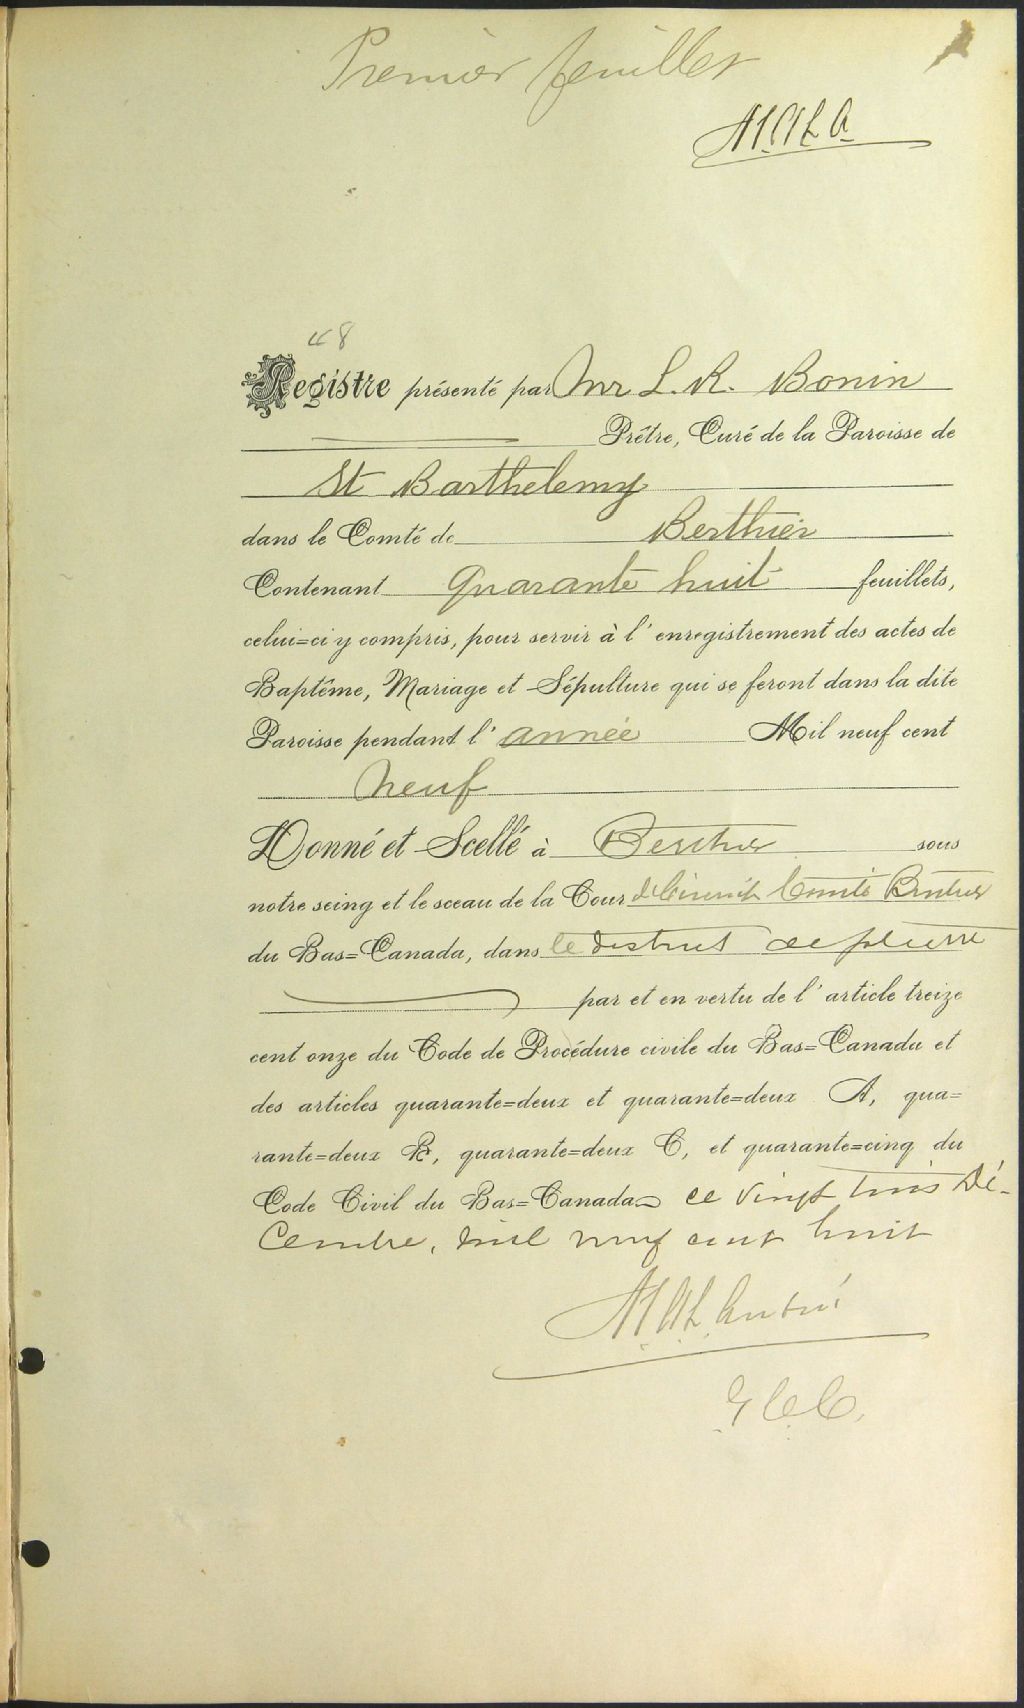 Premier feuillet
48
Registre présenté par Mr L. R. Bonin
Prêtre, Curé de la Paroisse de
St Barthelemy
dans le Comté de Berthier
Contenant Quarante huit feuillets,
celui=ci y compris, pour servir à l'enregistrement des actes de
Baptême, Mariage et Sépulture qui se feront dans la dite
Paroisse pendant l'année Mil neuf cent
neuf
Donné et Scellé à Berthier sous
notre seing et le sceau de la Cour de Circuit Comté Berthier
du Bas=Canada, dans le district de
par et en vertu de l'article treize
cent onze du Code de Procédure civile du Bas=Canada et
des articles quarante=deux et quarante=deux A, qua=
rante=deux B, quarante=deux C, et quarante=cinq du
Code Civil du Bas=Canada ce vingt trois Dé-
cembre, mil neuf cent huit
G.C.C.